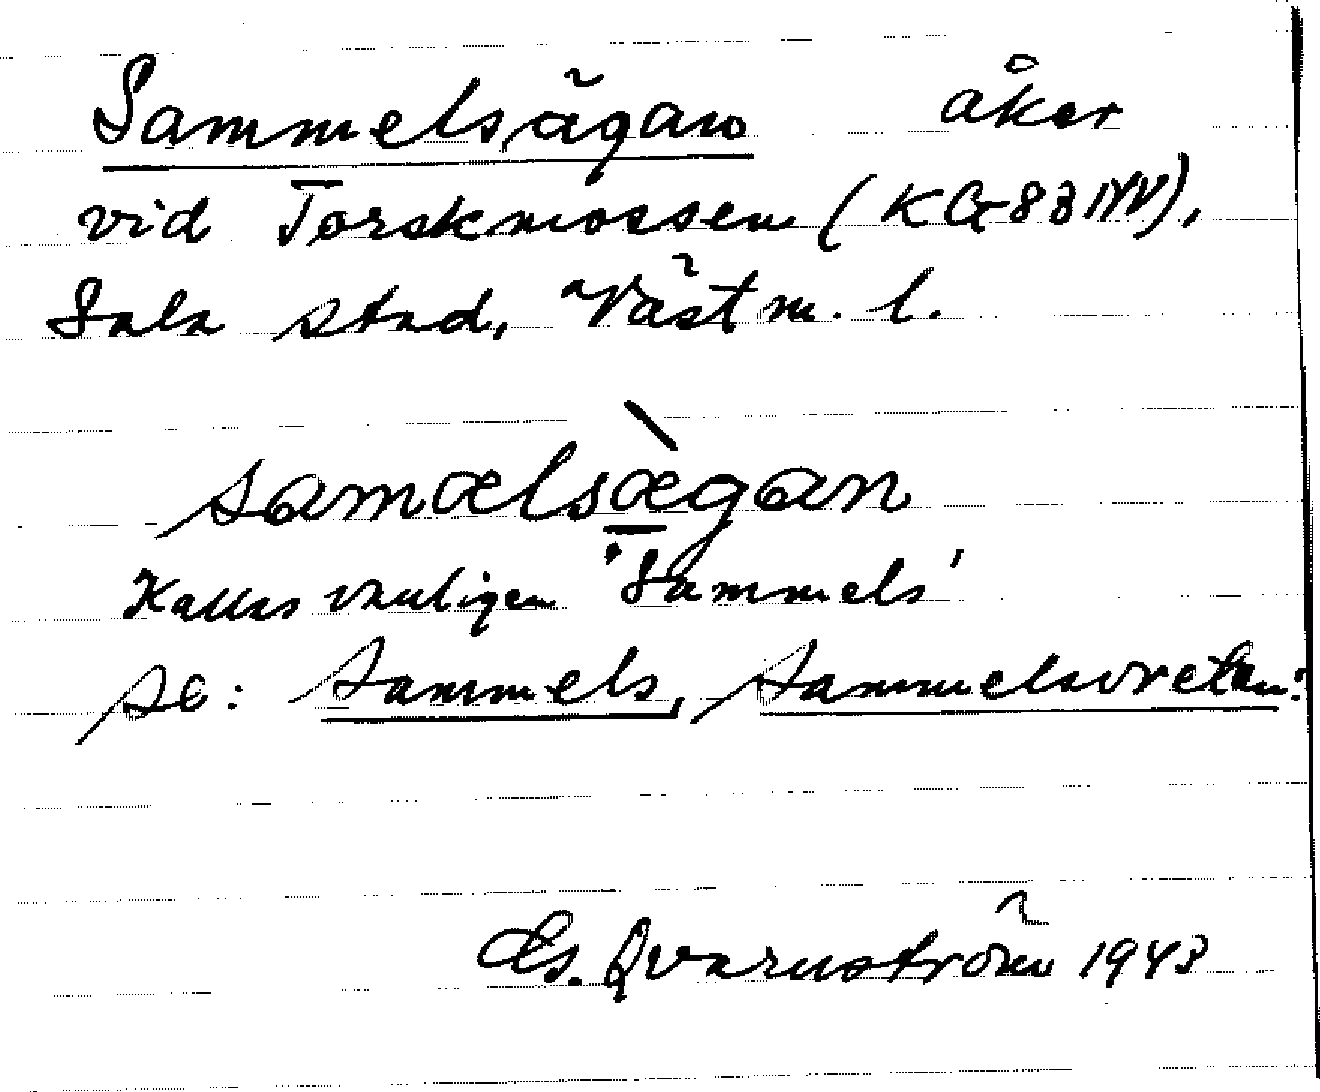 Sammelsägan åker
vid Torskmossen (KG 83 NV),
Sala stad, Västm. l.
samælsæ̀gan
Kallas vanligen 'Sammels'
se: Sammels, Sammelsvreten.
Qvarnström 1943